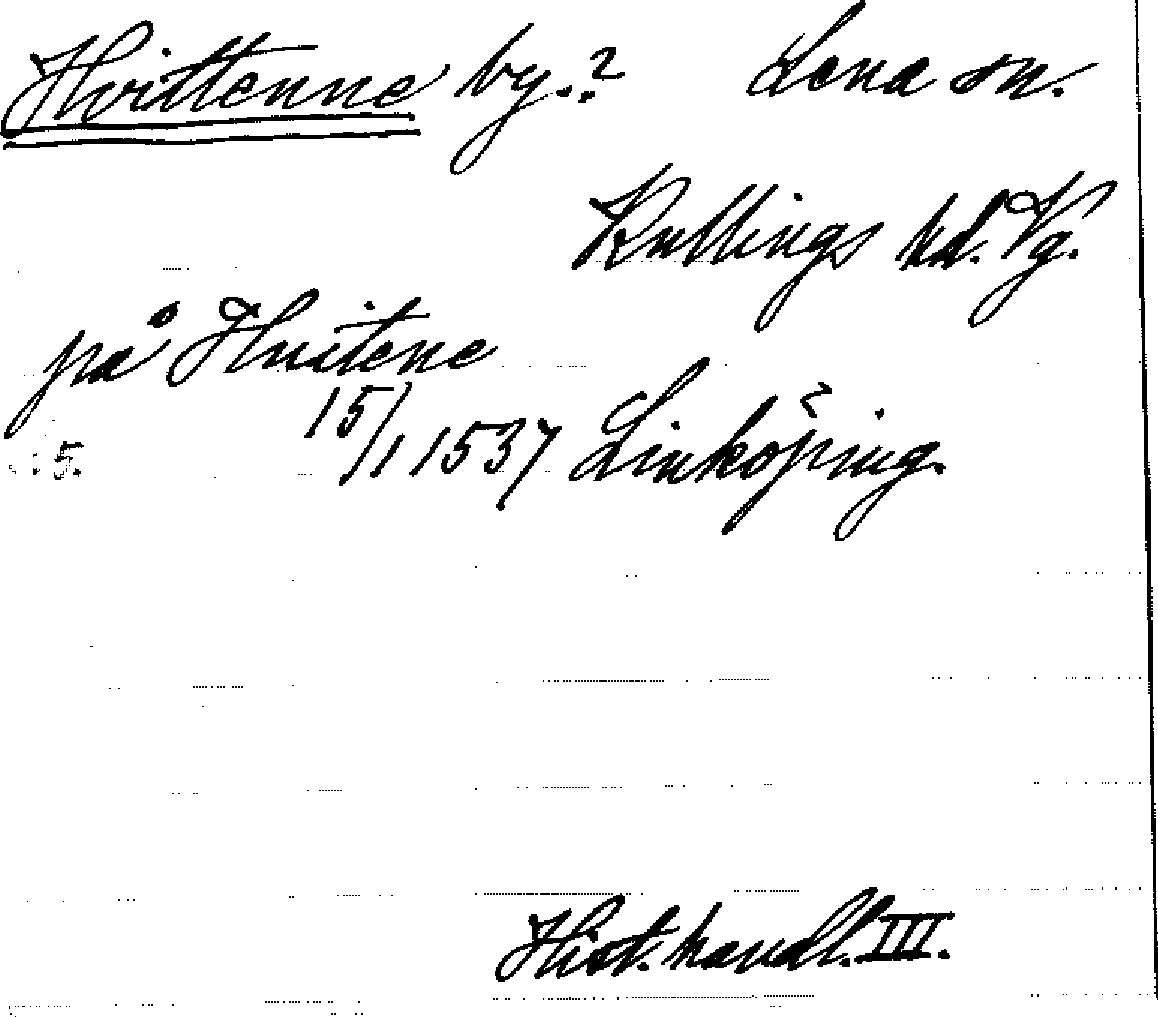 Hvittenne by.? Lena sn.
Kullings hd. Vg.
på Huitene
15/1 1537 Linköping.
Hist. handl. III.